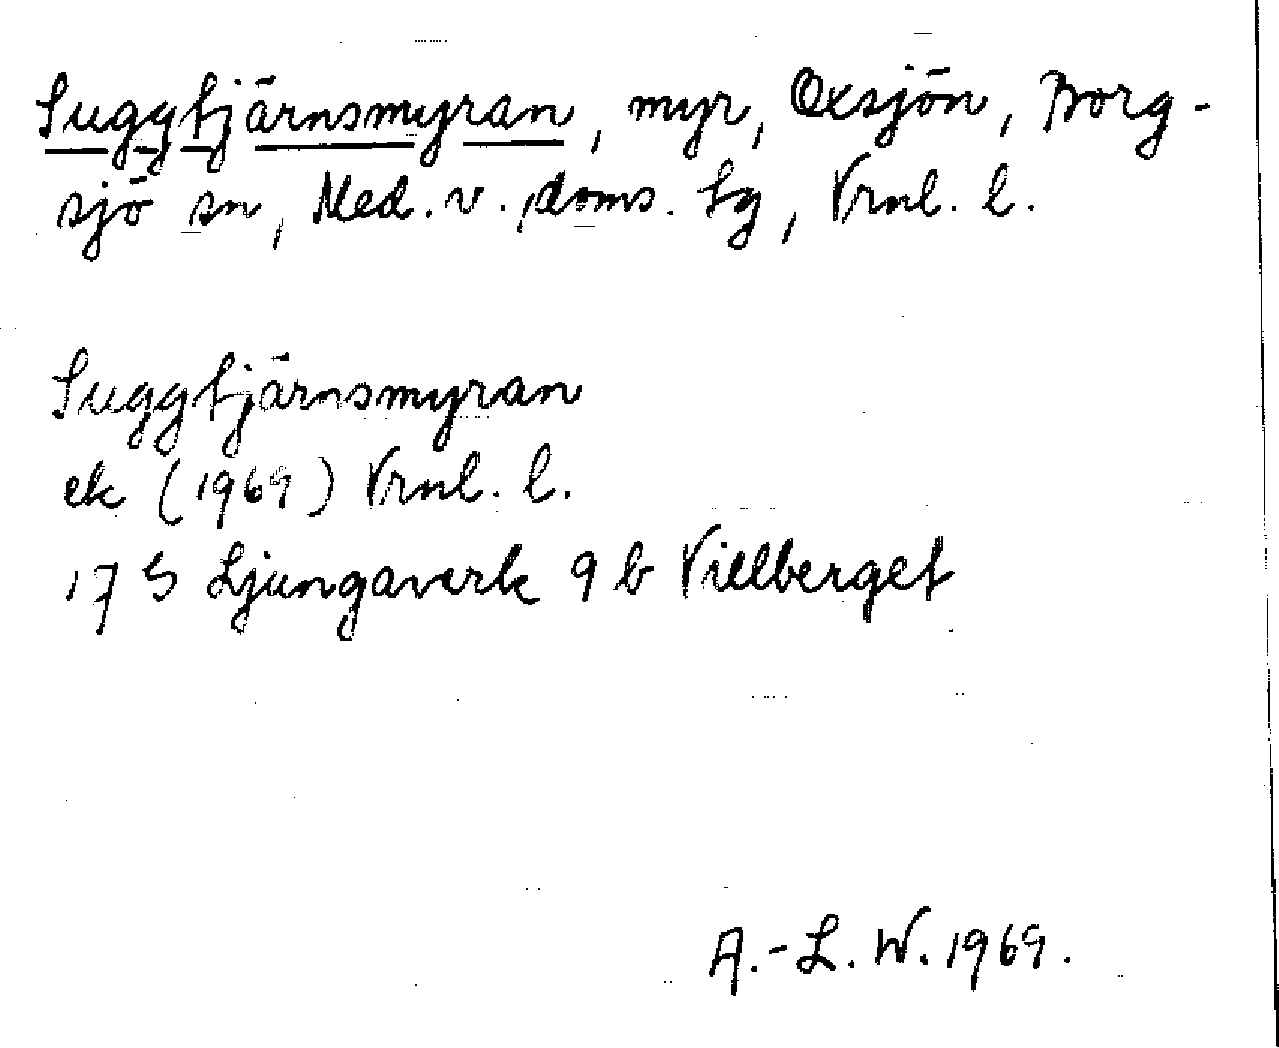 Suggtjärnsmyran, myr, Oxsjön, Borg-
sjö sn, Med. v. doms. sg, Vrnl. l.
Suggtjärnsmyran
ek (1969) Vrnl. l.
17 G Ljungaverk 9 b Villberget
A.-L. W. 1969.